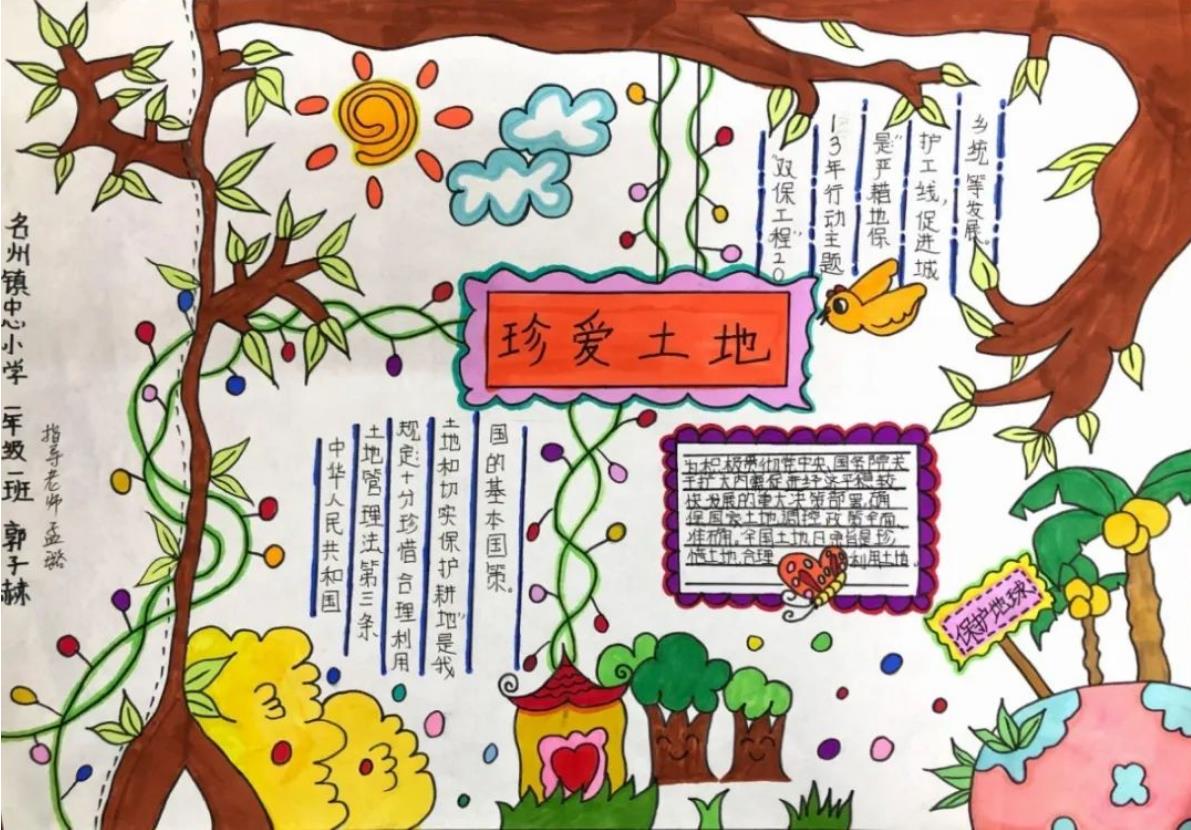 珍爱土地
"双保工程"20
13年行动主题
是"严耤地保
护工线,促进城
乡统等发展。
中华人民共和国
土地管理法第三条
规定:十分珍惜 合理利用
土地和切实保护耕地"是我
国的基本国策。
为积极贯彻党中央、国务院关
于扩大内需促进经济平稳较
快发展的重大决策部署,确
保国家土地调控政策全面、
准确。全国土地日宗旨是珍
惜土地、合理利用土地。
保护地球
名州镇中心小学 年级一班 郭子赫
指导老师 孟璐